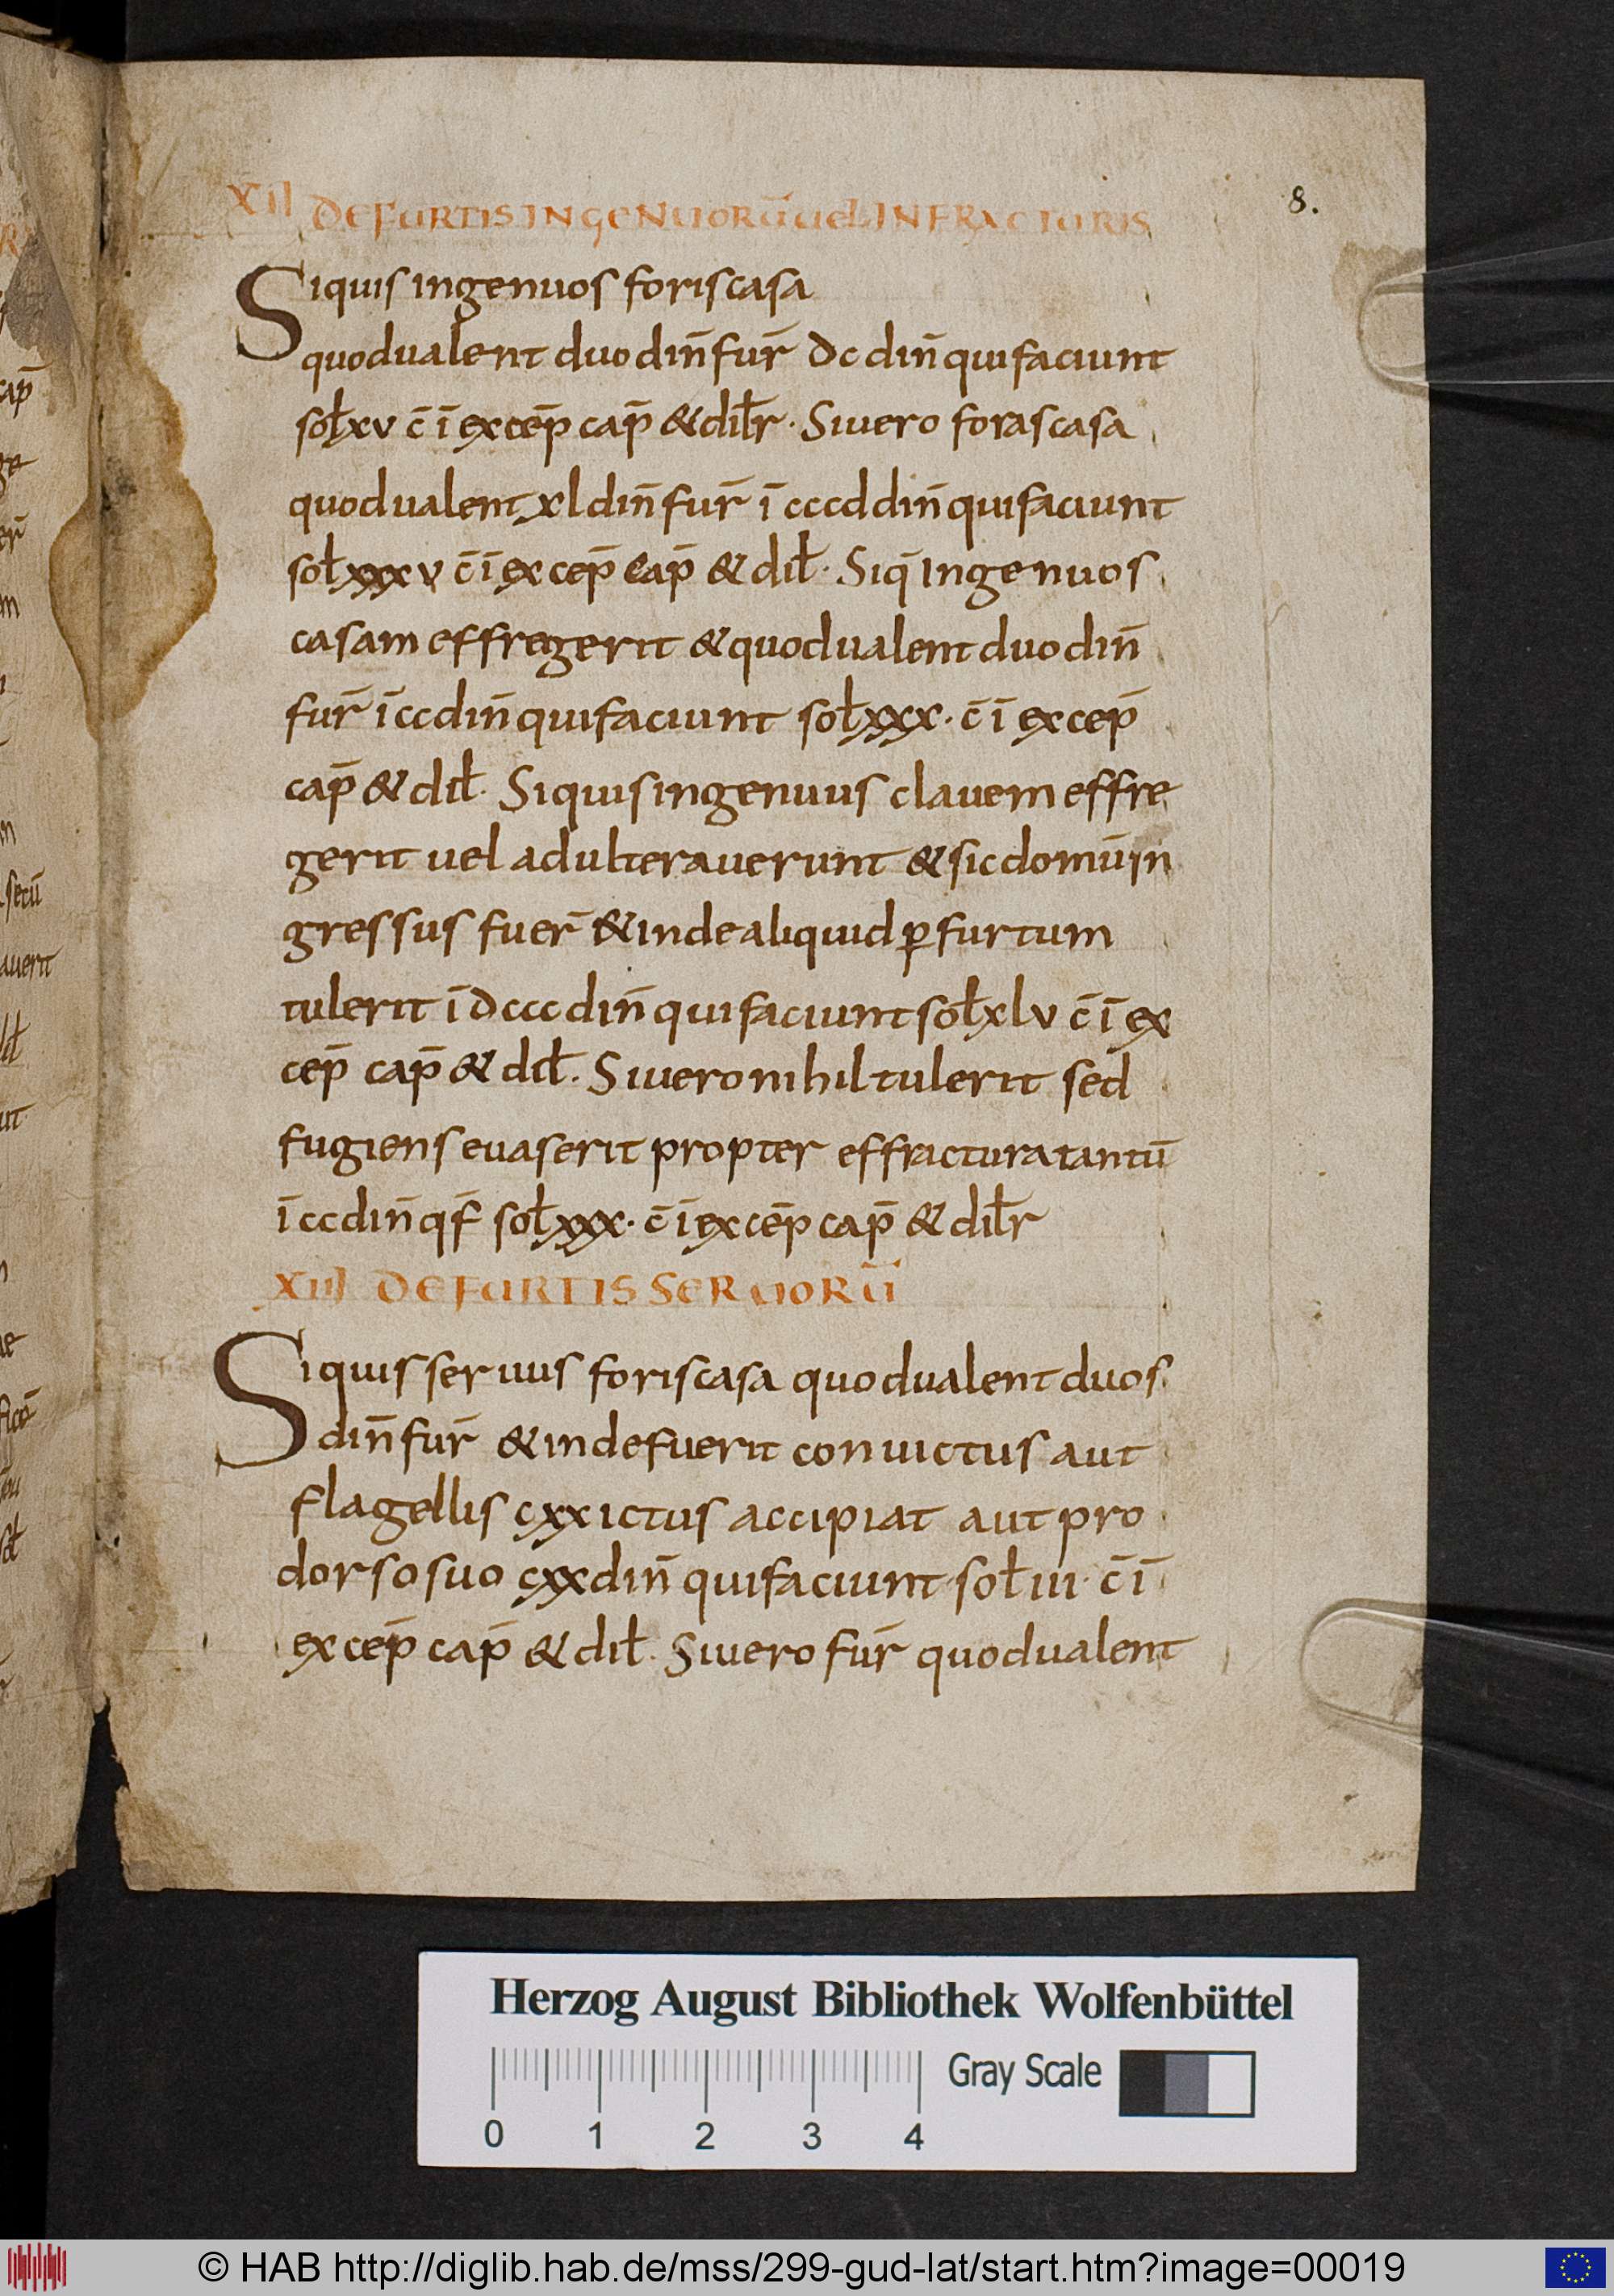 8.
XII DE FURTIS INGENUORŪ UEL INFRACTURIS
Siquis ingenuos foris casa
quod ualent duo din̄ fur̄ Dc din̄ qui faciunt
soł xv c̄ ī excep̄ cap̄ & diłr · Siuero foras casa
quod ualent xl din̄ fur̄ ī cccd din̄ qui faciunt
soł xxxv c̄ ī excep̄ cap̄ & dił · Siq̄ ingenuos
casam effregerit & quod ualent duo din̄
fur̄ ī cc din̄ qui faciunt soł xxx · c̄ ī excep̄
cap̄ & dił · Siquis ingenuus clauem effre
gerit uel adulterauerunt & sic domū in
gressus fuer̄ & inde aliquid ꝑ furtum
tulerit ī Dccc din̄ qui faciunt soł xlv c̄ ī ex
cep̄ cap̄ & dił. Siuero nihil tulerit sed
fugiens euaserit propter effractura tantū
ī cc din̄ qf̄ soł xxx · c̄ ī excep̄ cap̄ & diłr
XIII DE FURTIS SERUORŪ
Siquis seruus foris casa quod ualent duos
din̄ fur̄ & inde fuerit conuictus aut
flagellis cxx ictus accipiat aut pro
dorso suo cxx din̄ qui faciunt soł iii · c̄ ī
excep̄ cap̄ & dił · Siuero fur̄ quod ualent
Herzog August Bibliothek Wolfenbüttel
Gray Scale
0 1 2 3 4
© HAB http://diglib.hab.de/mss/299-gud-lat/start.htm?image=00019